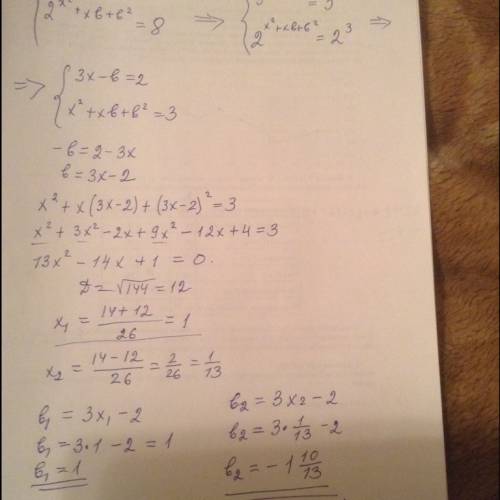 2^{x²+xв+в²} = 8 => 2^{x²+xв+в²} = 2³ =>
=> { 3x-в=2
x²+xв+в²=3
-в=2-3x
в=3x-2
x²+x(3x-2)+(3x-2)²=3
x²+3x²-2x+9x²-12x+4=3
13x²-14x+1=0.
D=√144=12
x₁ = (14+12)/26 = 1
x₂ = (14-12)/26 = 2/26 = 1/13
в₁ = 3x₁-2
в₁=3·1-2=1
в₁=1
в₂ = 3x₂-2
в₂=3·1/13-2
в₂=-1 10/13